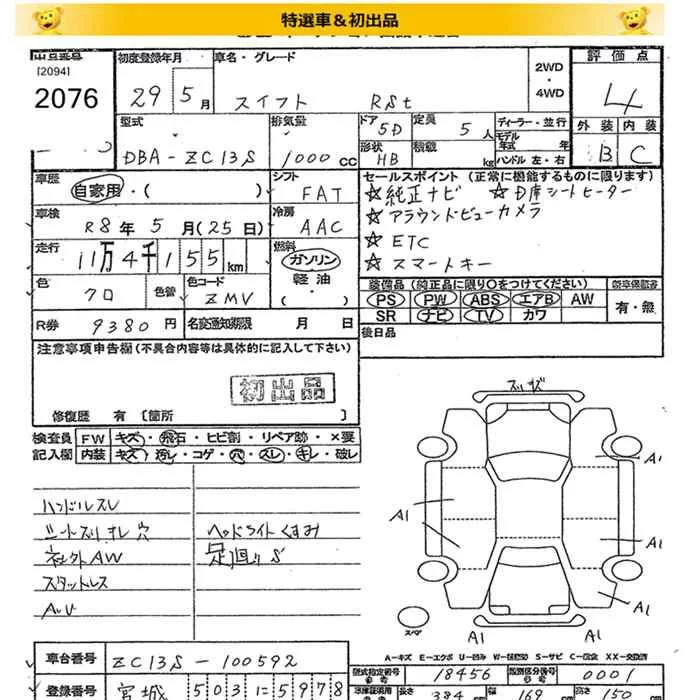 特選車＆初出品
出品番号 初度登録年月 車名・グレード 2WD 評価点
[2094]
2076 29年5月 スイフト RSt ・4WD 4
型式 排気量 ドア 5D 定員 5人 ディーラー・並行 外装 内装
DBA-ZC13S 1000cc 形状 HB 積載 kg モデル年式 年 B C
ハンドル 左・右
車歴 自家用・( ) シフト FAT セールスポイント (正常に機能するものに限ります)
☆純正ナビ ☆シートヒーター
車検 R8年5月(25日) 冷房 AAC ☆アラウンドビューカメラ
走行 11万4千155km 燃料 ガソリン ☆ETC
軽油 ☆スマートキー
・( )
色 クロ 色替 色コード ZMV 装備品 (純正品に限り○をつけてください) 新車保証書
PS PW ABS エアB AW 有・無
R券 9380円 名変通知期限 月 日 SR ナビ TV カワ
後日品
注意事項申告欄(不具合内容等は具体的に記入して下さい)
初出品
修復歴 有 [箇所 ]
検査員 FW キズ・飛石・ヒビ割・リペア跡・×要
記入欄 内装 キズ・汚レ・コゲ・穴・スレ・キレ・破レ
スリキズ
A1
A1
A1
A1
A1 A1
スペア
ハンドルスレ
シートスリキレ 穴 ヘッドライトくすみ
社外AW 足廻りS
スタットレス
A,U
A-キズ E-エクボ U-凹み W-補修跡 S-サビ C-腐食 XX-交換済
車台番号 ZC13S-100592 型式指定番号 18456 類別区分番号 0001
登録番号 宮城 503 に 5978 長さ 384cm 幅 169cm 高さ 150cm